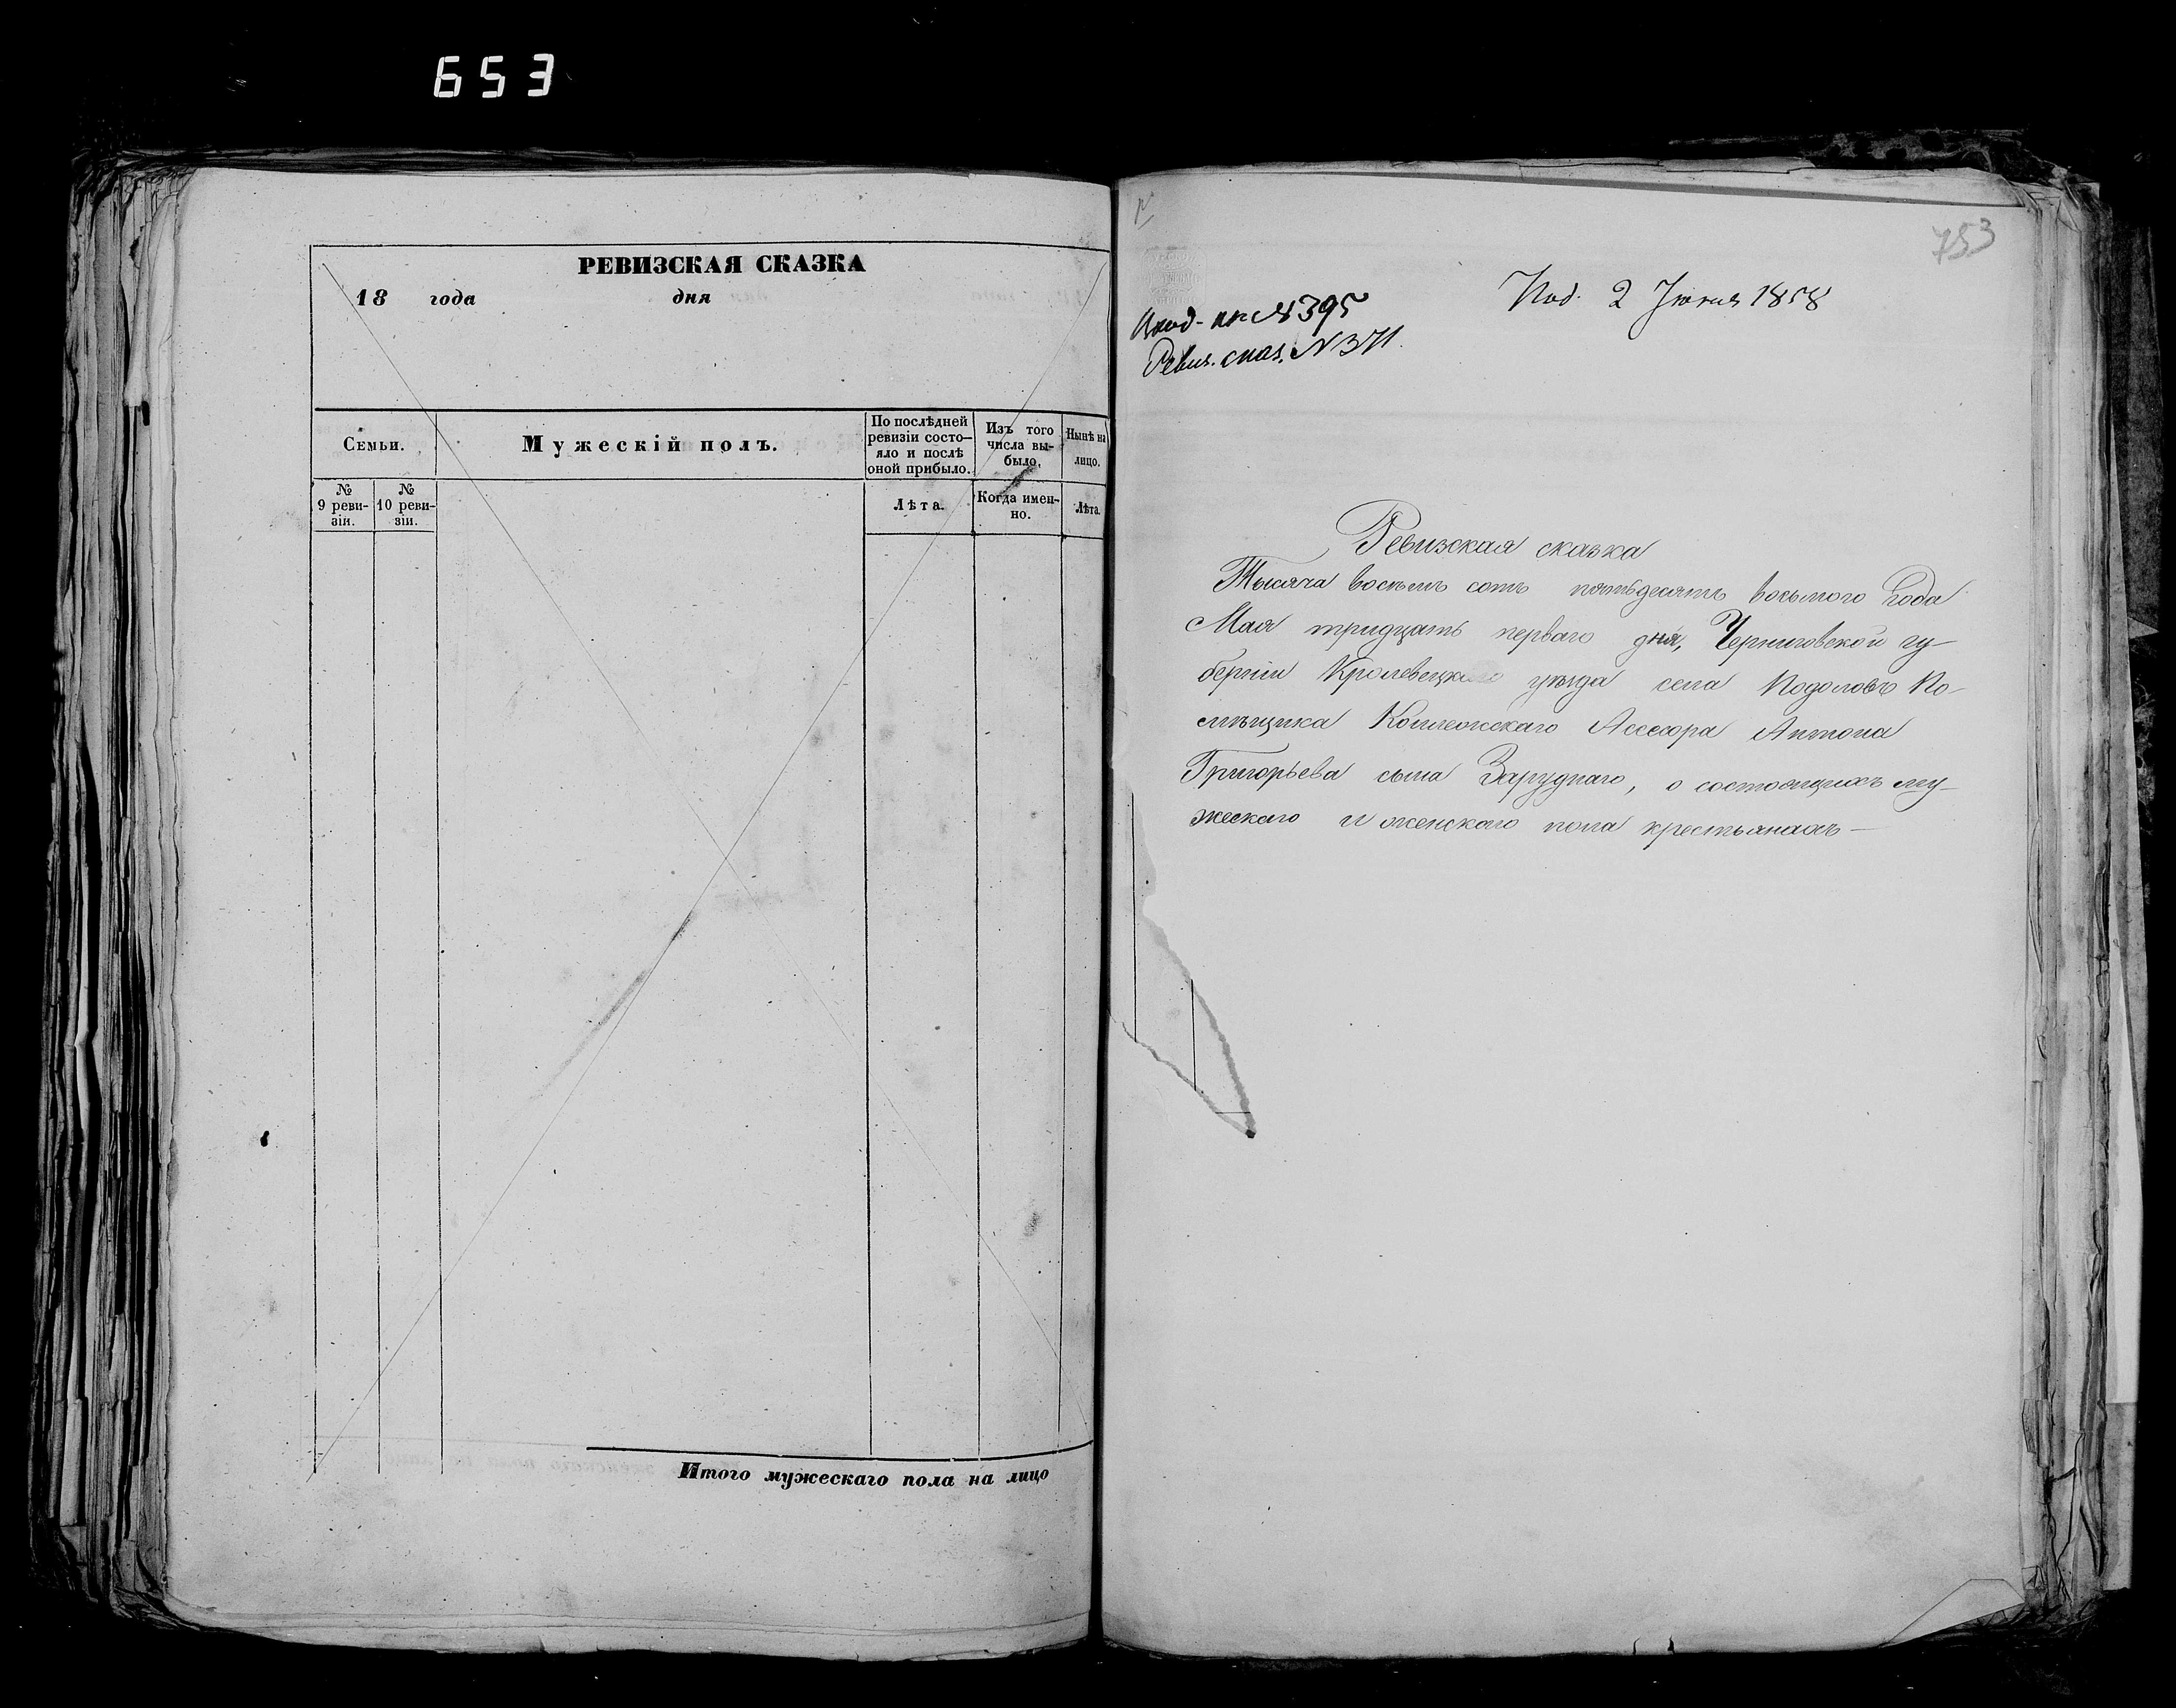 653
РЕВИЗСКАЯ СКАЗКА
18 года дня
Семьи.
Мужескій полъ.
По послѣдней ревизіи состо-
яло и послѣ
оной прибыло.
Изъ того
числа вы-
было,
Нынѣ на
лицо.
№
9 реви-
зіи.
№
10 реви-
зіи.
Лѣта.
Когда имен-
но.
Лѣта.
Итого мужескаго пола на лицо
753
Под. 2 Іюня 1858
№ 395
Ревиз. сказ. N 371.
Ревизская сказка
Тысяча восемь сотъ пятьдесятъ восьмого Года
Мая тридцать перваго дня, Черниговской гу-
берніи Кролевецкаго уѣзда села Подоловъ По-
мѣщика Коллежскаго Ассесора Антона
Григорьева сына Заруднаго, о состоящихъ му-
жескаго и женскаго пола крестьянахъ —